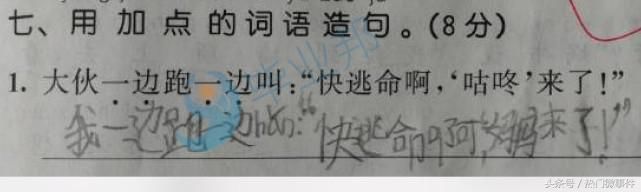 七、用加点的词语造句。(8分)
1. 大伙一边跑一边叫：“快逃命啊，‘咕咚’来了！”
我一边跑一边喊：“快逃命啊，妈妈来了！”
头条号 / 热门微事件